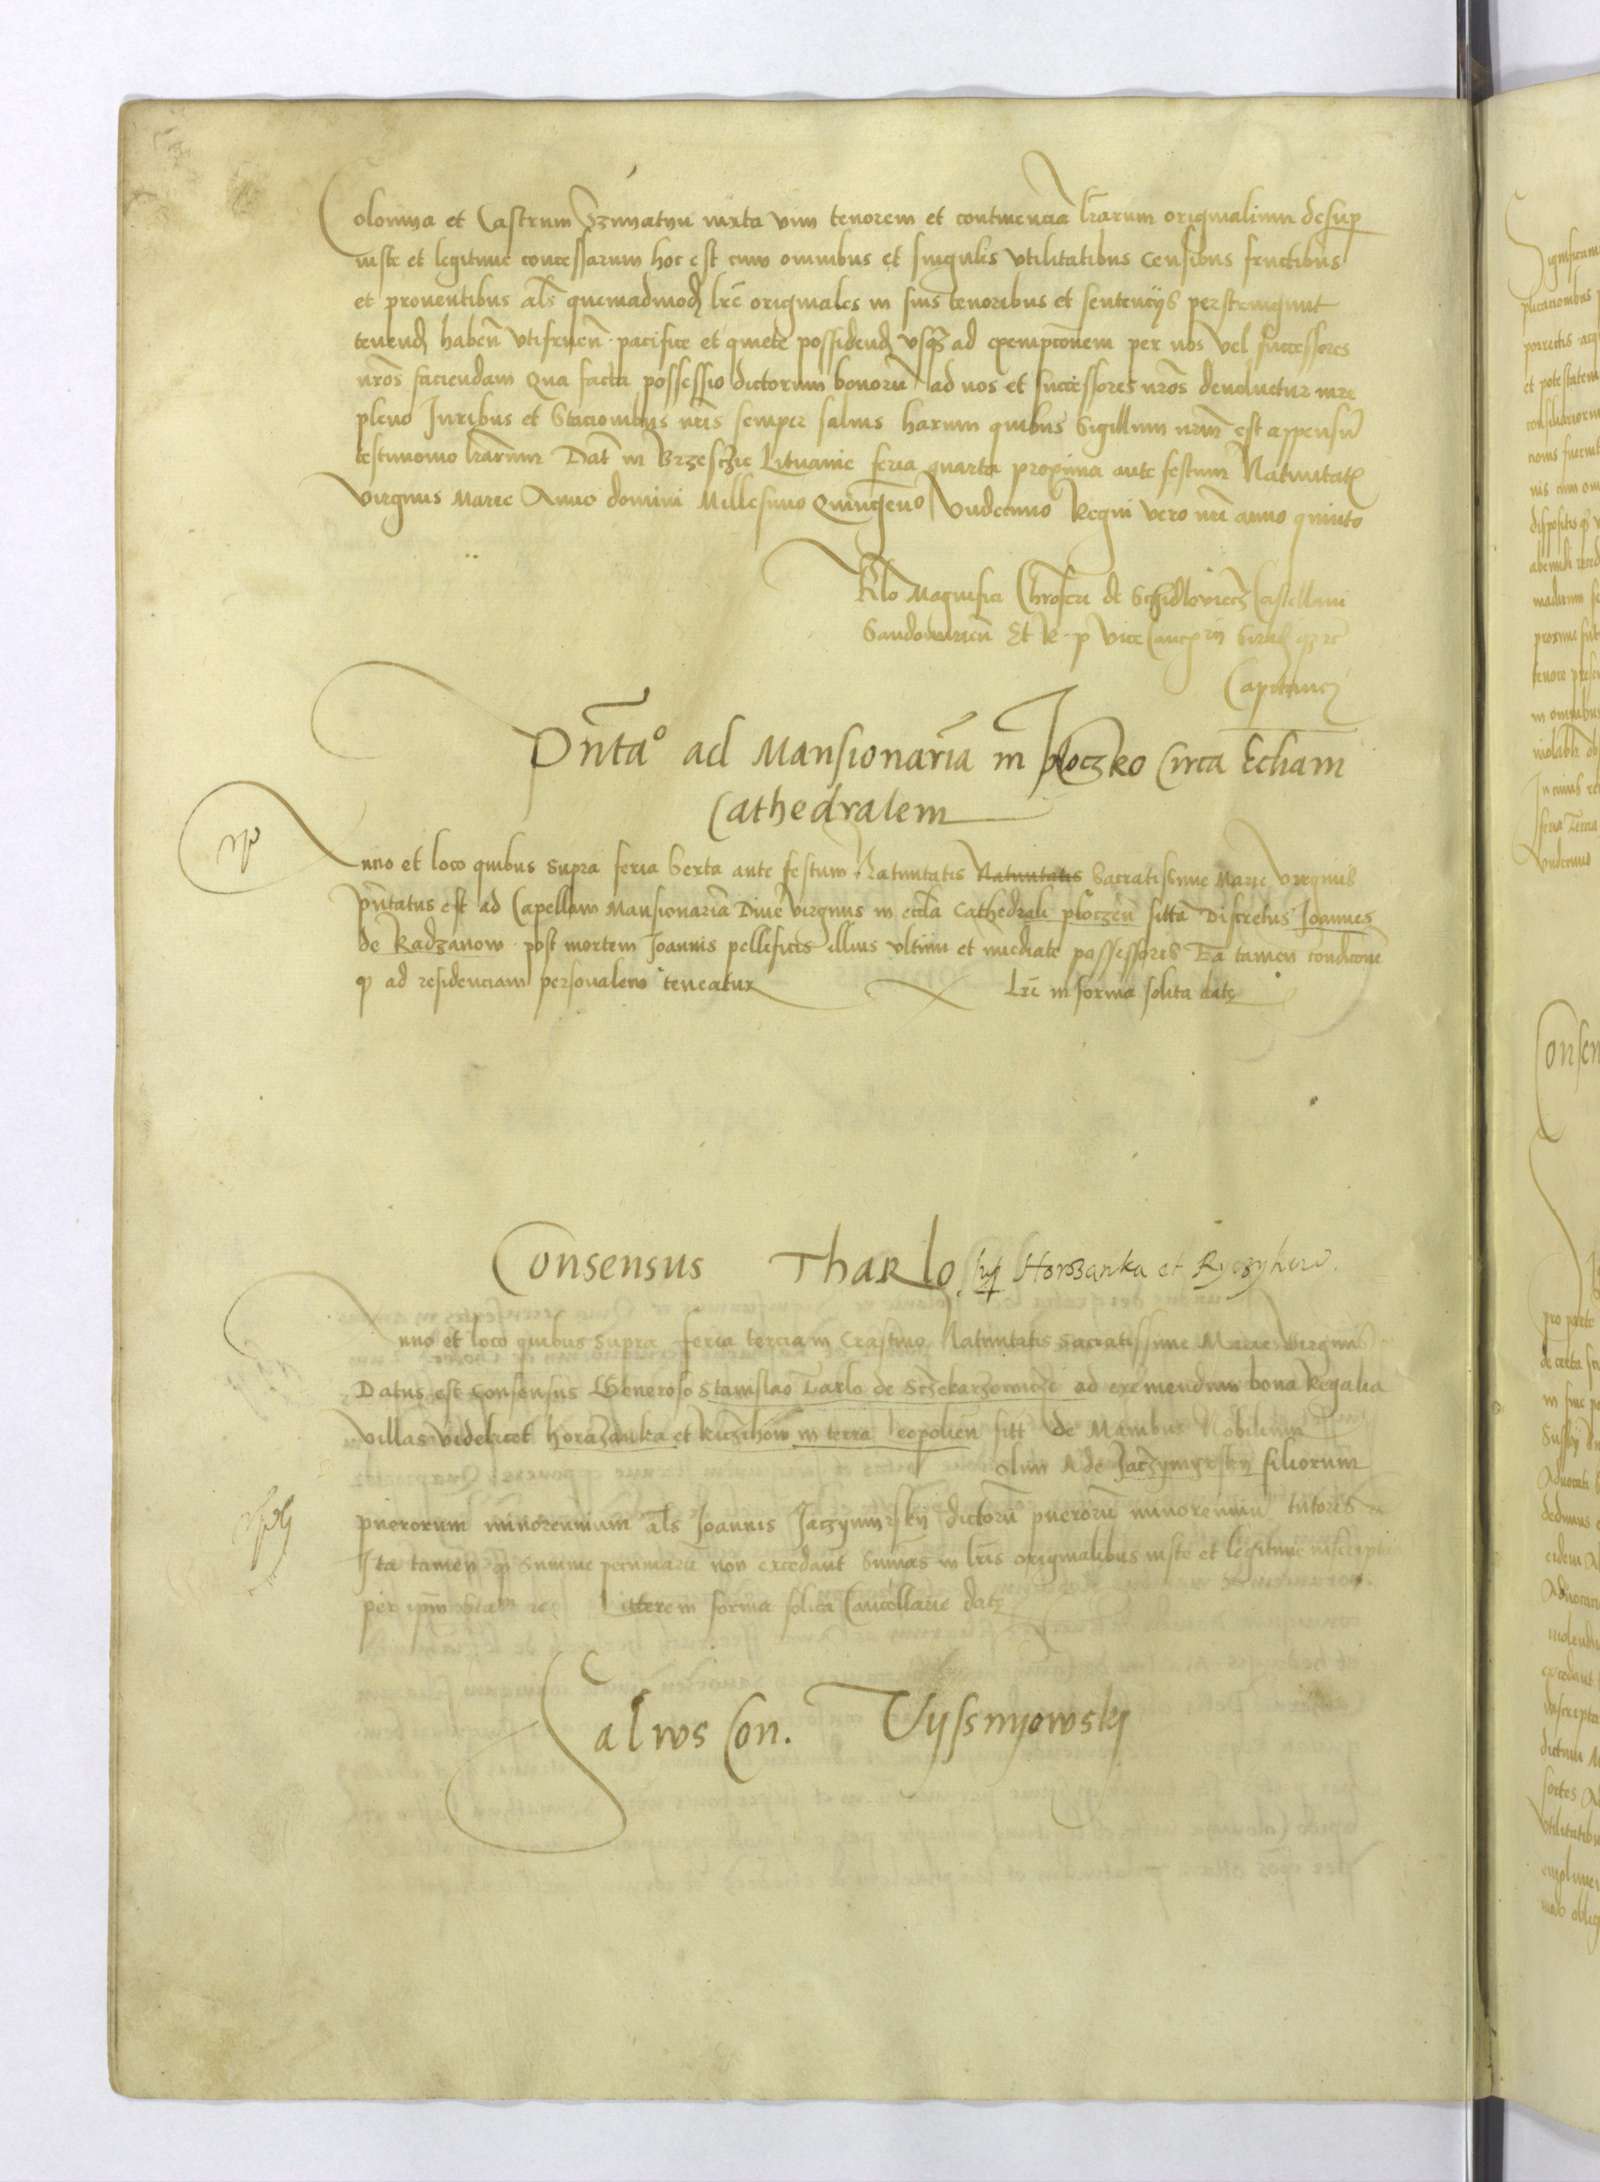 Colomya et Castrum Sznyatyn iuxta vim tenorem et continencia lrarum originalium desup
iuste et legitime concessarum hoc est cum omnibus et singulis vtilitatibus Censibus fructibus
et prouentibus als quemadmod lre originales in suis tenoribus et sentencijs perstringunt
tenend haben vtifruen pacifice et quiete possidend vsq ad exempcionem per nos vel successores
nros faciendam Qua facta possessio dictorum bonoru ad nos et successores nros deuoluetur iure
pleno Iuribus et Stacionibus nris semper saluis harum quibus Sigillum nrm est appensu
testimonio lrarum Dat in Brzesczie Lituanie feria quarta proxima ante festum Natiuitatis
Virginis Marie Anno domini Millesimo Quingeno Vndecimo Regni vero nri anno quinto
Rlo Magnifici Chrofori de Schidlowiecz Castellani
Sandomirien Et R p Vice Cancrij Sirad qz rc
Capitanei
Pnta° ad Mansionaria in ploczko Circa Ecliam
Cathedralem
Anno et loco quibus supra feria Sexta ante festum Natiuitatis Natiuitatis Sacratissime Marie Virginis
pntatus est ad Capellam Mansionaria Diue virginis in eccla Cathedrali ploczen sitta Discretus Joannes
de Radzanow post mortem Joannis pellificis illius vltimi et mediate possessoris Ea tamen condicone
q ad residenciam personalem teneatur Lre in forma solita date
Consensus Tharlo sup Horozanka et Ryczyhow.
Anno et loco quibus supra feria tercia in Crastino Natiuitatis Sacratissime Marie Virginis
Datus est Consensus Generoso Stanislao Tarlo de Sczekarzowicze ad exemendum bona Regalia
villas videlicet Horazanka et Riczihow in terra leopolien sitt de Manibus Nobilium
olim A de Jaczymyrsky filiorum
puerorum minorennium als Joannis Jaczymirskij dictoru pueroru minorenniu tutoris
Ita tamen q Summe pecuniarie non excedant Sumas in lris originalibus iuste et legitime inscriptas
per ipm Litere in forma solita Cancellarie date
Salws Con. Vyssnyowsky